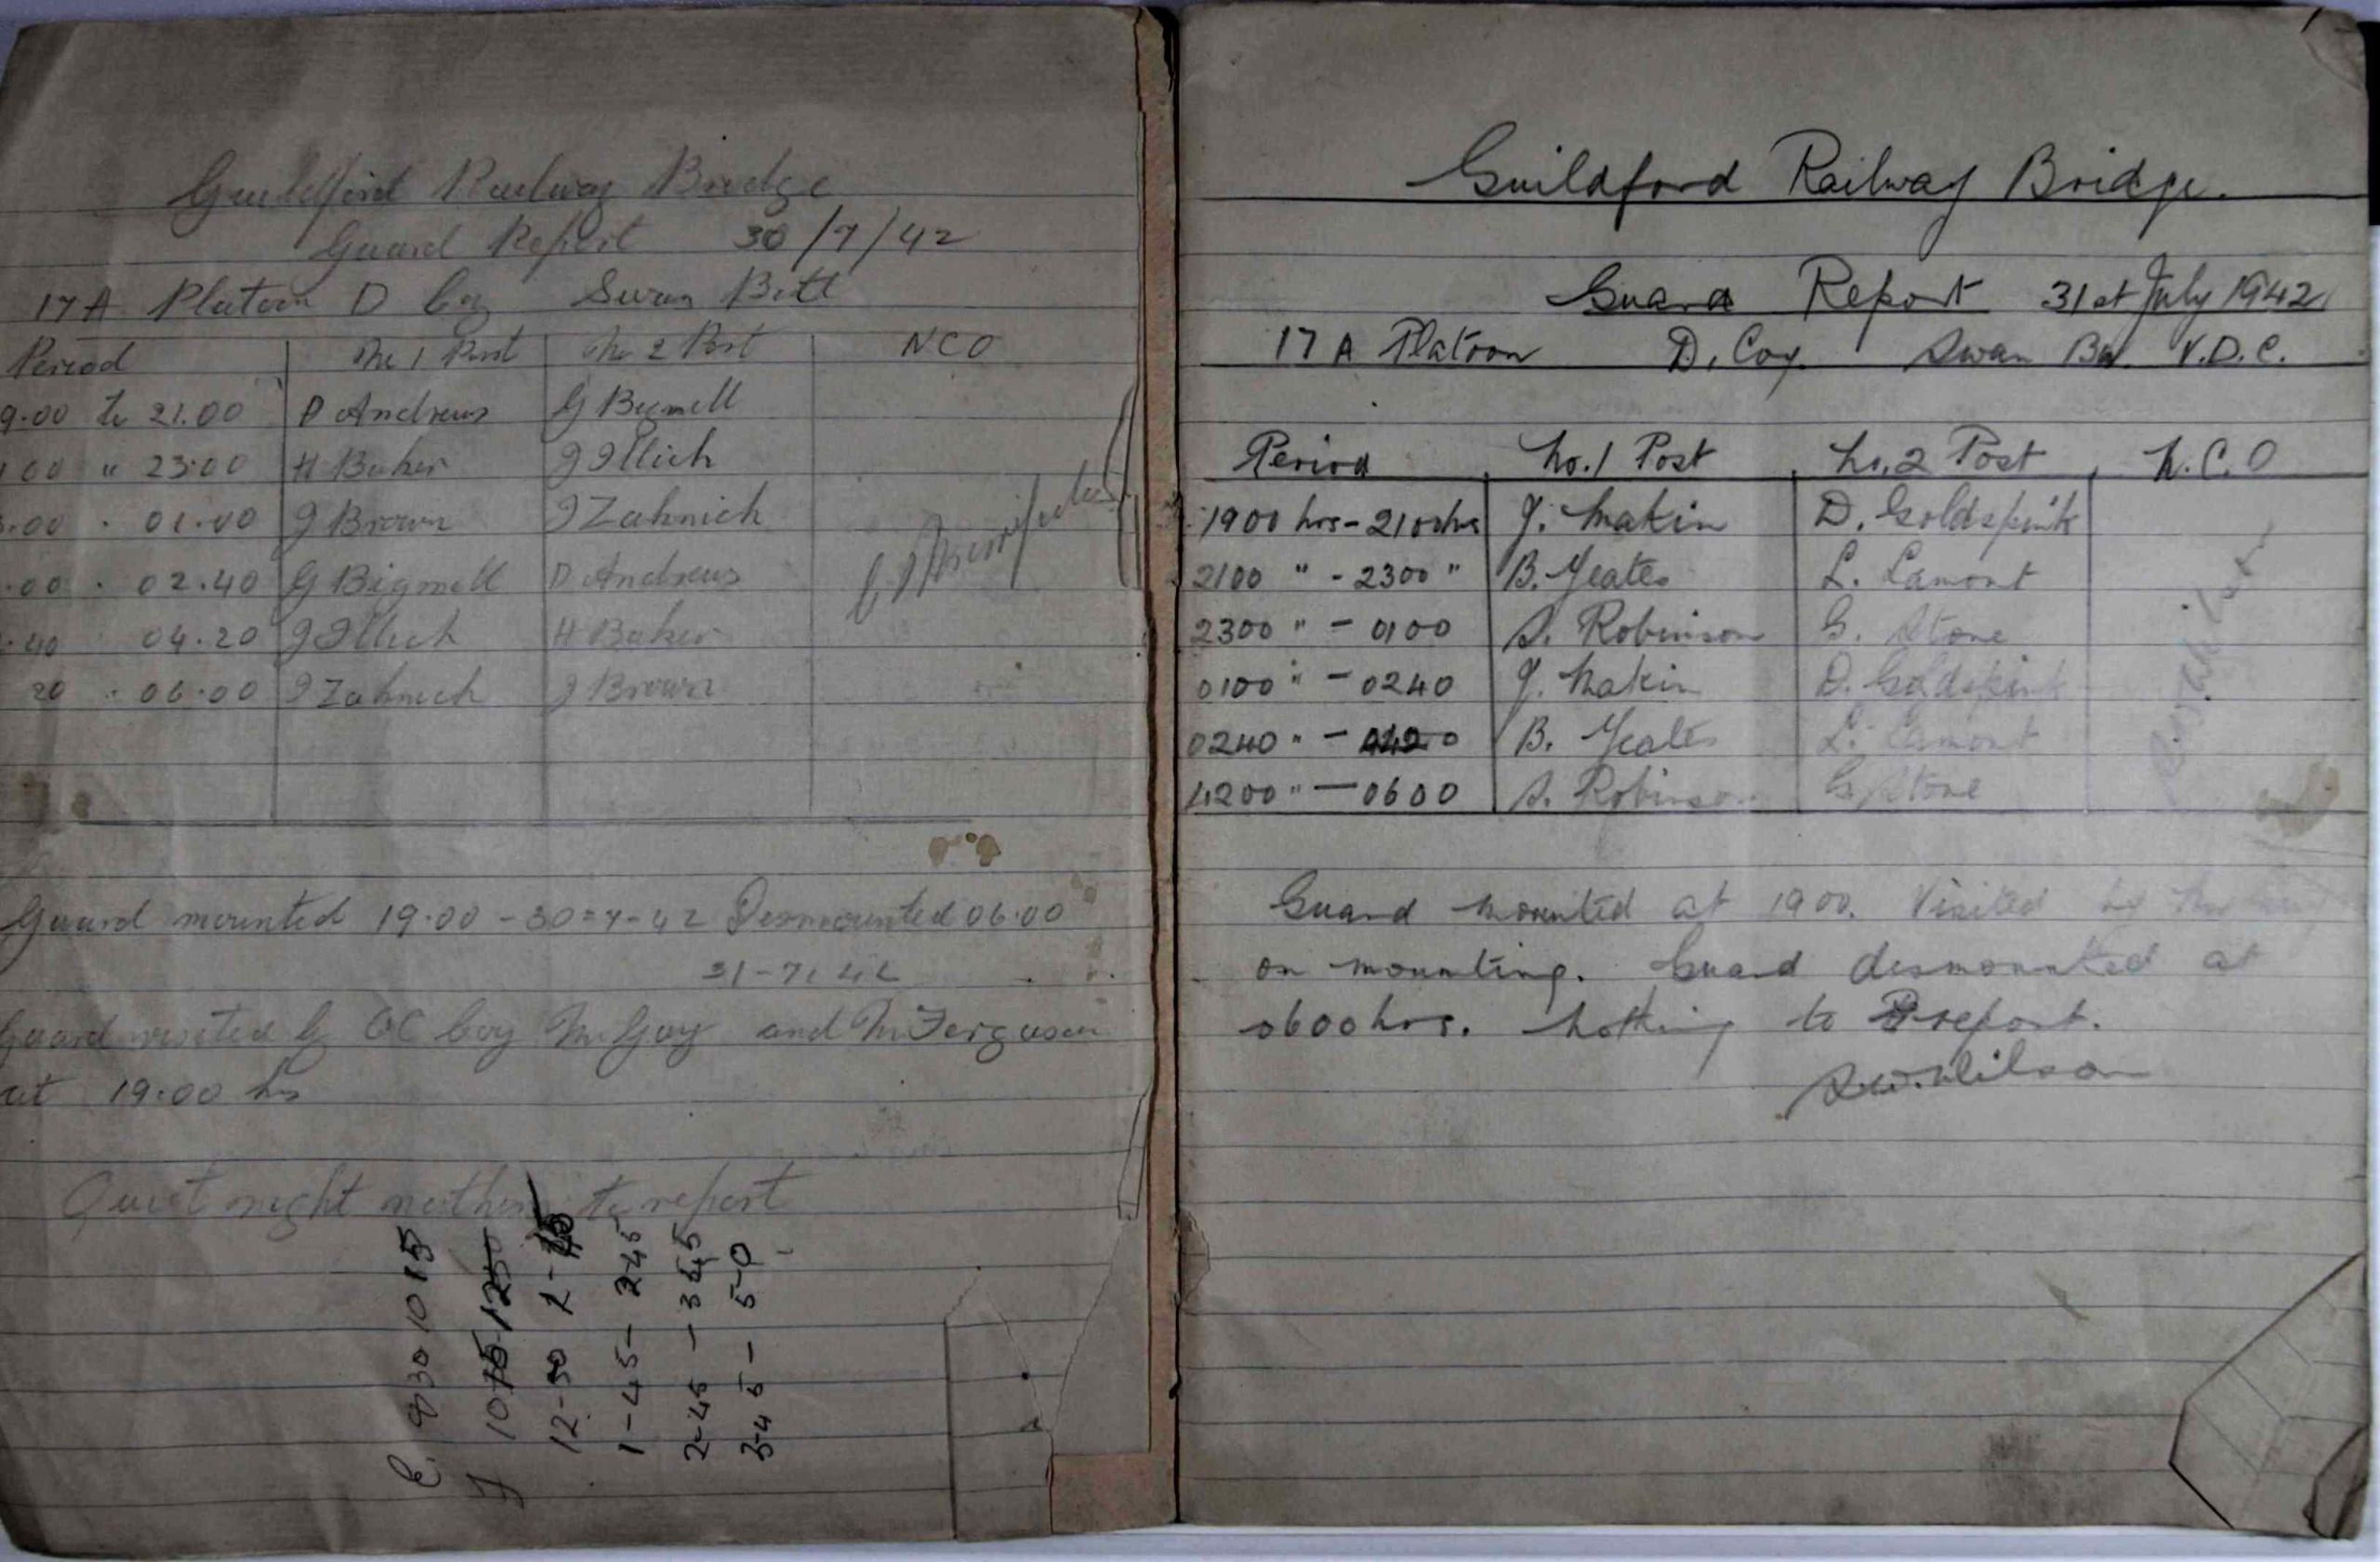 Guildford Railway Bridge
Guard Report 30/7/42
17A Platoon D Coy Swan Batt
Period No 1 Post No 2 Post NCO
9.00 to 21.00 D Andrews G Bignell
00 " 23.00 H Baker J Illich
.00 . 01.00 J Brown J Zahnich
.00 . 02.40 G Bignell D Andrews
.40 04.20 J Illich H Baker
20 " 06.00 J Zahnich J Brown
Guard mounted 19.00 - 30-7-42 Dismounted 06.00
31-7-42
Guard visited by OC Coy Mr Goy and Mr Ferguson
at 19.00 hrs
Quiet night nothing to report
E. 9 30 10 15
1-45 - 2 45
2-45 - 3 45
3-45 - 5-0
Guildford Railway Bridge.
Guard Report 31st July 1942
17 A Platoon D. Coy. Swan Bn. V.D.C.
Period No. 1 Post No. 2 Post N.C.O
1900 hrs - 2100hrs J. Makin D. Goldspink
2100 " - 2300 " B. Yeates L. Lamont
2300 " - 0100 S. Robinson G. Stone
0100 " - 0240 J. Makin D. Goldspink
0240 " - 0420 B. Yeates L. Lamont
4200 " - 0600 S. Robinson G. Stone
Guard mounted at 1900. Visited by
on mounting. Guard desmounted at
0600 hrs. Nothing to report.
S.W. Wilson